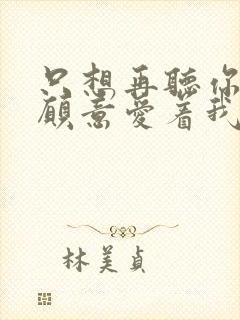 只想再聽你
願意愛着我
林美貞